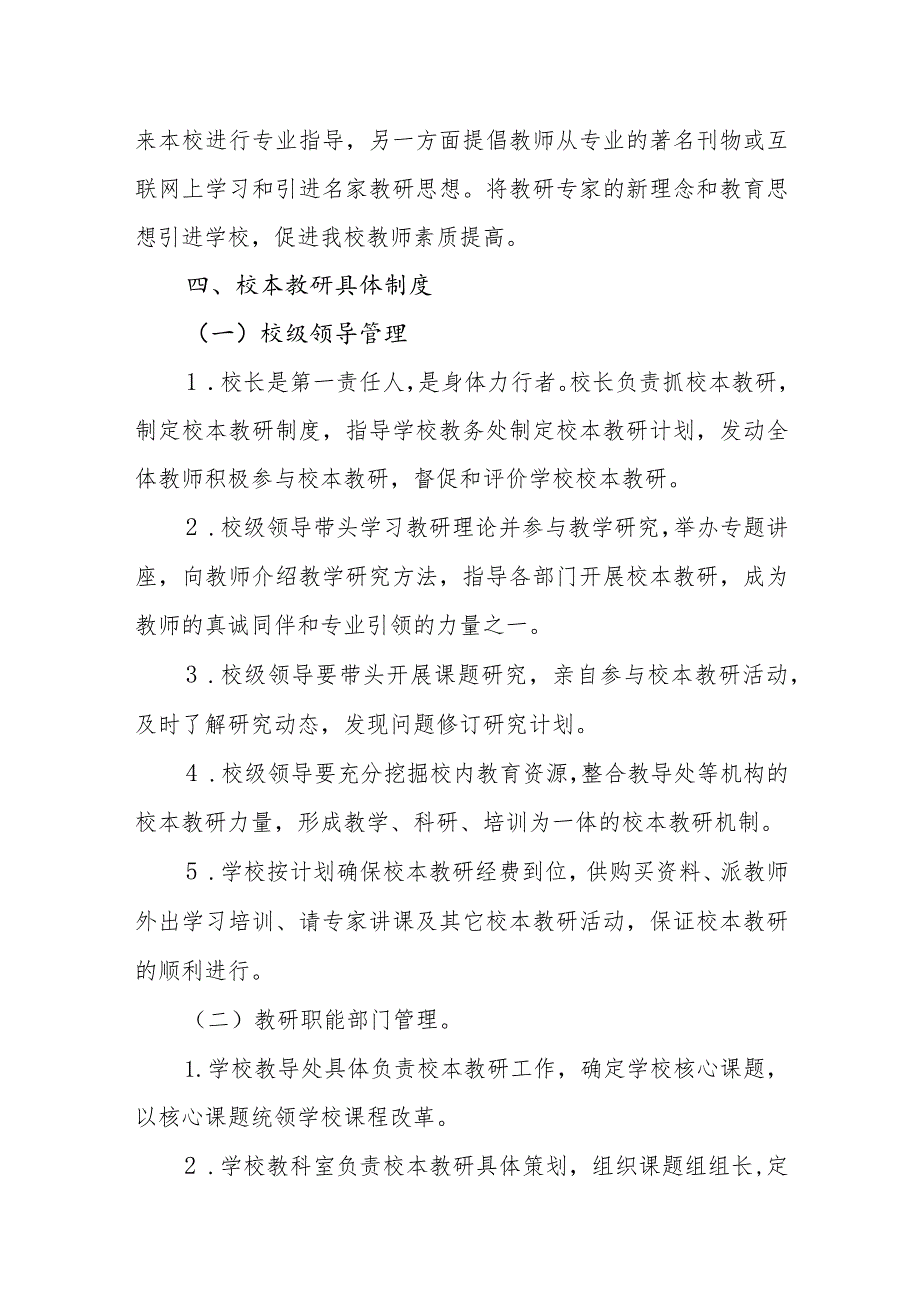 来本校进行专业指导，另一方面提倡教师从专业的著名刊物或互
联网上学习和引进名家教研思想。将教研专家的新理念和教育思
想引进学校，促进我校教师素质提高。
四、校本教研具体制度
（一）校级领导管理
1．校长是第一责任人，是身体力行者。校长负责抓校本教研，
制定校本教研制度，指导学校教务处制定校本教研计划，发动全
体教师积极参与校本教研，督促和评价学校校本教研。
2．校级领导带头学习教研理论并参与教学研究，举办专题讲
座，向教师介绍教学研究方法，指导各部门开展校本教研，成为
教师的真诚同伴和专业引领的力量之一。
3．校级领导要带头开展课题研究，亲自参与校本教研活动，
及时了解研究动态，发现问题修订研究计划。
4．校级领导要充分挖掘校内教育资源，整合教导处等机构的
校本教研力量，形成教学、科研、培训为一体的校本教研机制。
5．学校按计划确保校本教研经费到位，供购买资料、派教师
外出学习培训、请专家讲课及其它校本教研活动，保证校本教研
的顺利进行。
（二）教研职能部门管理。
1.学校教导处具体负责校本教研工作，确定学校核心课题，
以核心课题统领学校课程改革。
2．学校教科室负责校本教研具体策划，组织课题组组长,定